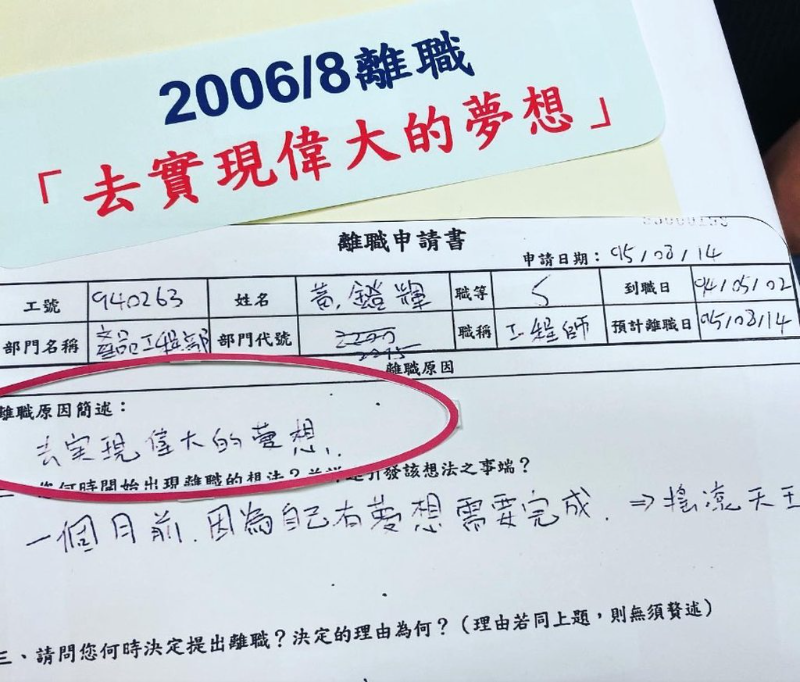 2006/8離職
「去實現偉大的夢想」
離職申請書
申請日期：95/08/14
工號 940263 姓名 黃鐙輝 職等 5 到職日 94/05/02
部門名稱 產品工程部 部門代號 2200 2295 職稱 工程師 預計離職日 95/08/14
離職原因
離職原因簡述：
去實現偉大的夢想.
您何時開始出現離職的想法？並詳述引發該想法之事端？
一個月前.因為自己有夢想需要完成. ⇒搖滾天王
三、請問您何時決定提出離職？決定的理由為何？（理由若同上題，則無須贅述）